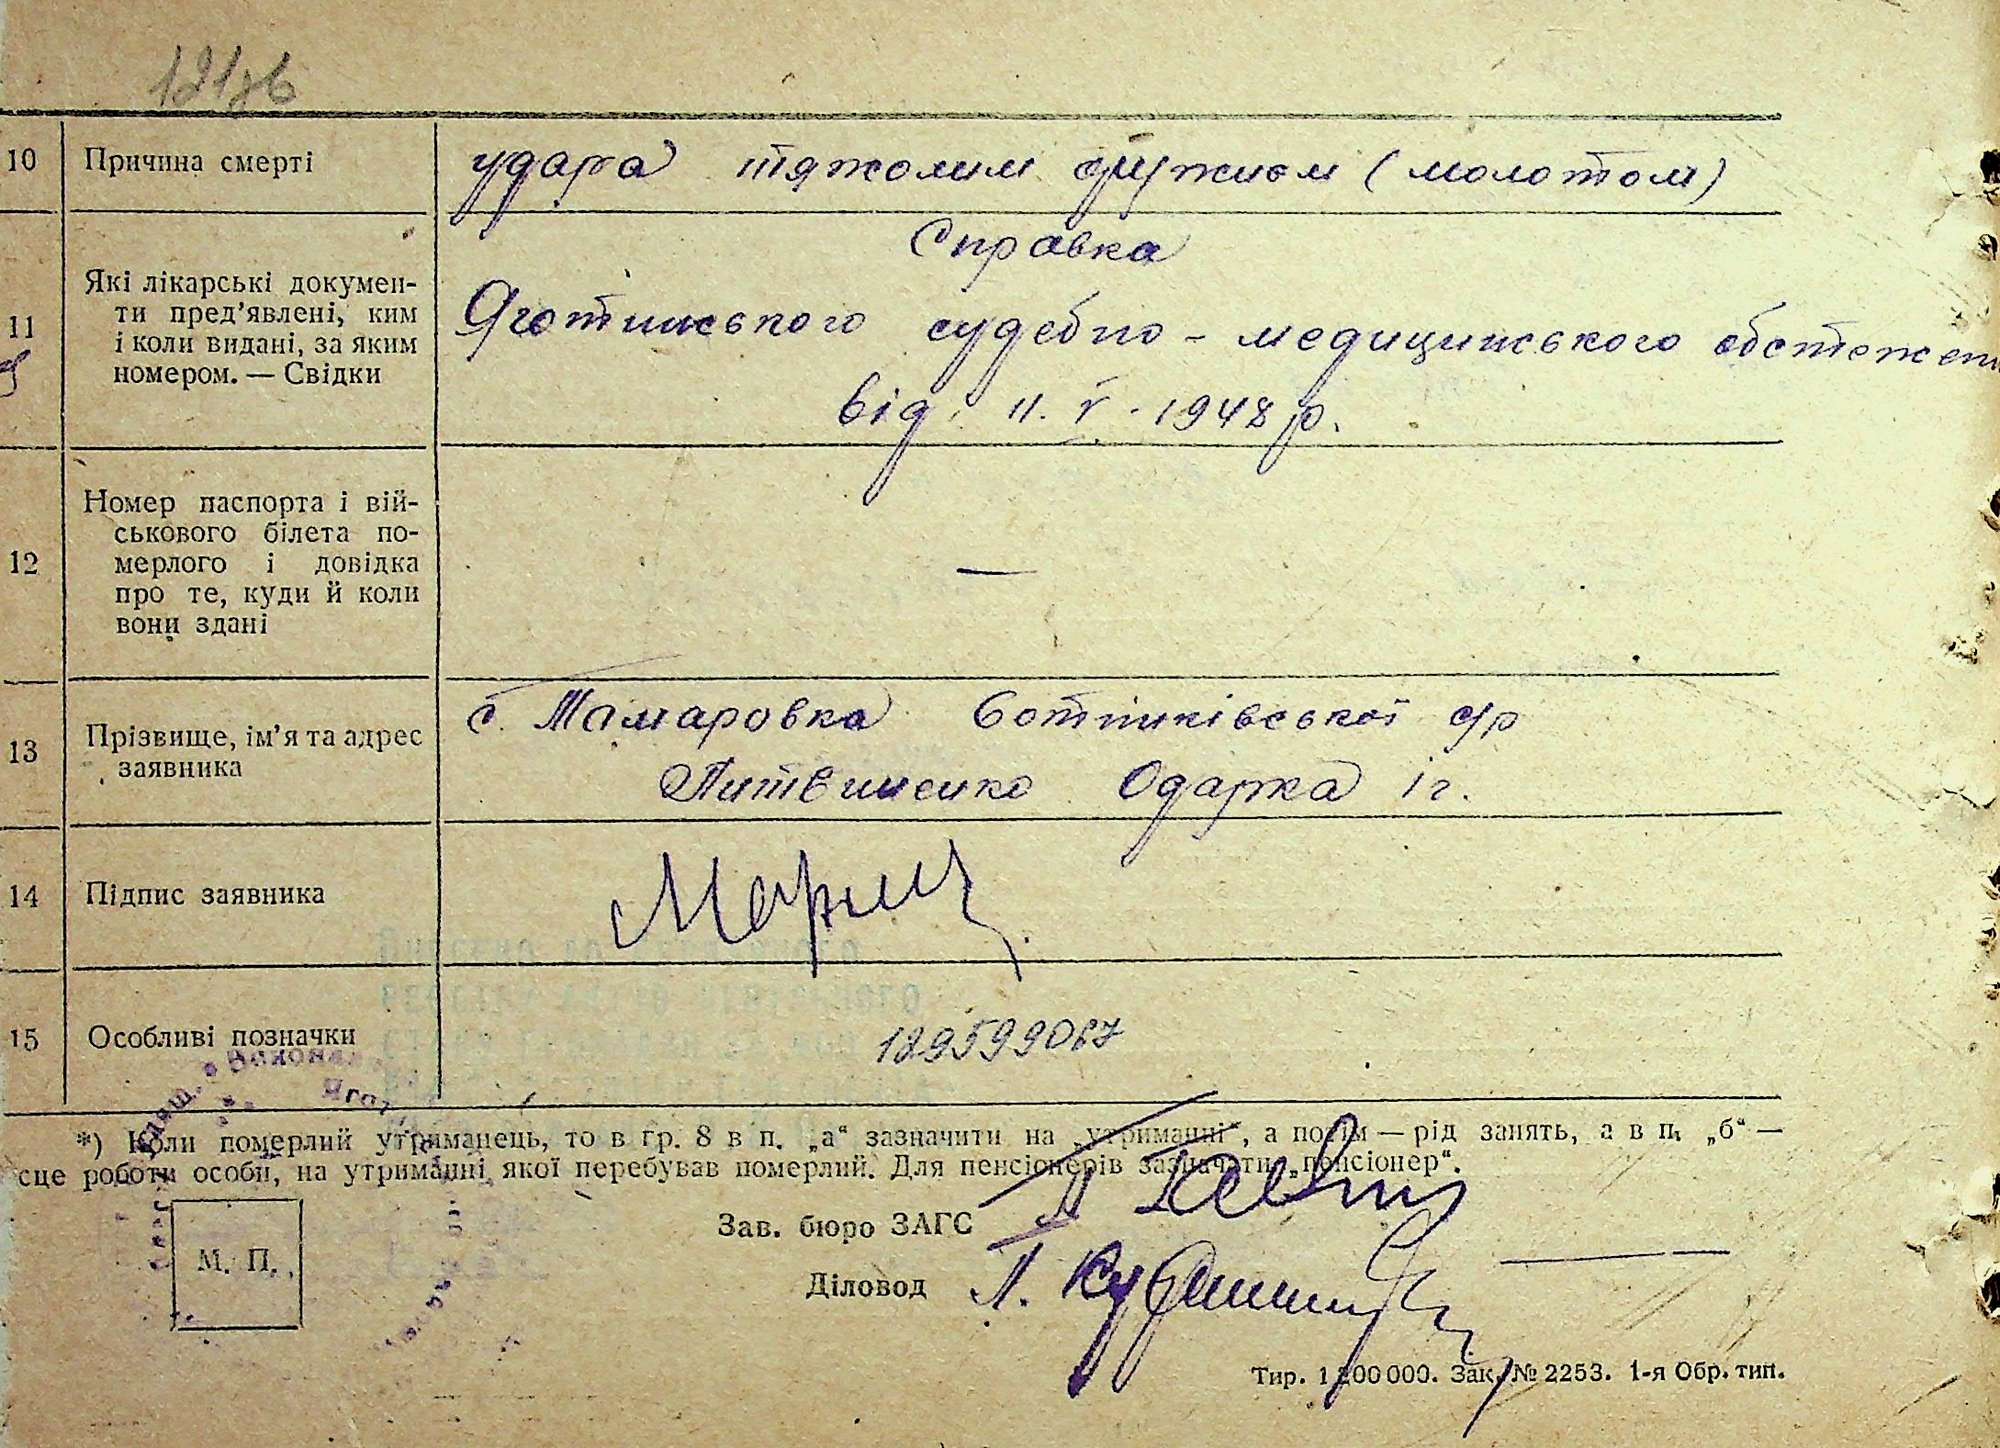 10 Причина смерті удара тяжолим оружием (молотом)
11 Які лікарські докумен-
ти пред'явлені, ким
і коли видані, за яким
номером. — Свідки
Справка
Яготинського судебно - медицинського
від 11. V. 1948 р.
12 Номер паспорта і вій-
ськового білета по-
мерлого і довідка
про те, куди й коли
вони здані
—
13 Прізвище, ім'я та адрес
заявника
с. Тамаровка Сотниківської с/р
Литвиненко Одарка Іг.
14 Підпис заявника
15 Особливі позначки
*) Коли померлий утриманець, то в гр. 8 в п. „а“ зазначити на „утриманні“, а потім — рід занять, а в п. „б“ —
сце роботи особи, на утриманні якої перебував померлий. Для пенсіонерів зазначати „пенсіонер“.
М. П.
Зав. бюро ЗАГС
Діловод Л.
Тир. 1 200 000. Зак. № 2253. 1-я Обр. тип.